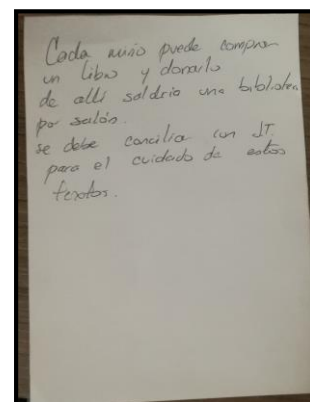 Cada niño puede comprar
un libro y donarlo
de allí saldría una biblioteca
por salón.
se debe conciliar con JT.
para el cuidado de estos
textos.